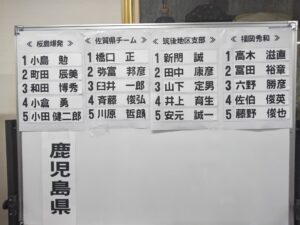 ≪ 桜島爆発 ≫
1 小島 勉
2 町田 辰美
3 和田 博秀
4 小倉 勇
5 小田 健二郎
≪ 佐賀県チーム ≫
1 橋口 正
2 弥富 邦彦
3 臼井 一郎
4 斉藤 俊弘
5 川原 哲顔
≪ 筑後地区支部 ≫
1 新開 誠
2 田中 康彦
3 山下 定男
4 井上 育生
5 安元 誠一
≪ 福岡秀和 ≫
1 高木 滋直
2 冨田 裕章
3 六野 勝彦
4 佐伯 俊英
5 藤野 俊也
鹿児島県